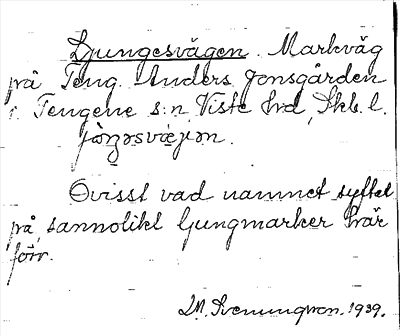 Ljungesvägen. Markväg
på Teng. Anders Jonsgården
i Tengene s:n Viste hrd, Skb. l.
Ovisst vad namnet syftat
på sannolikt ljungmarker här
förr.
1939.